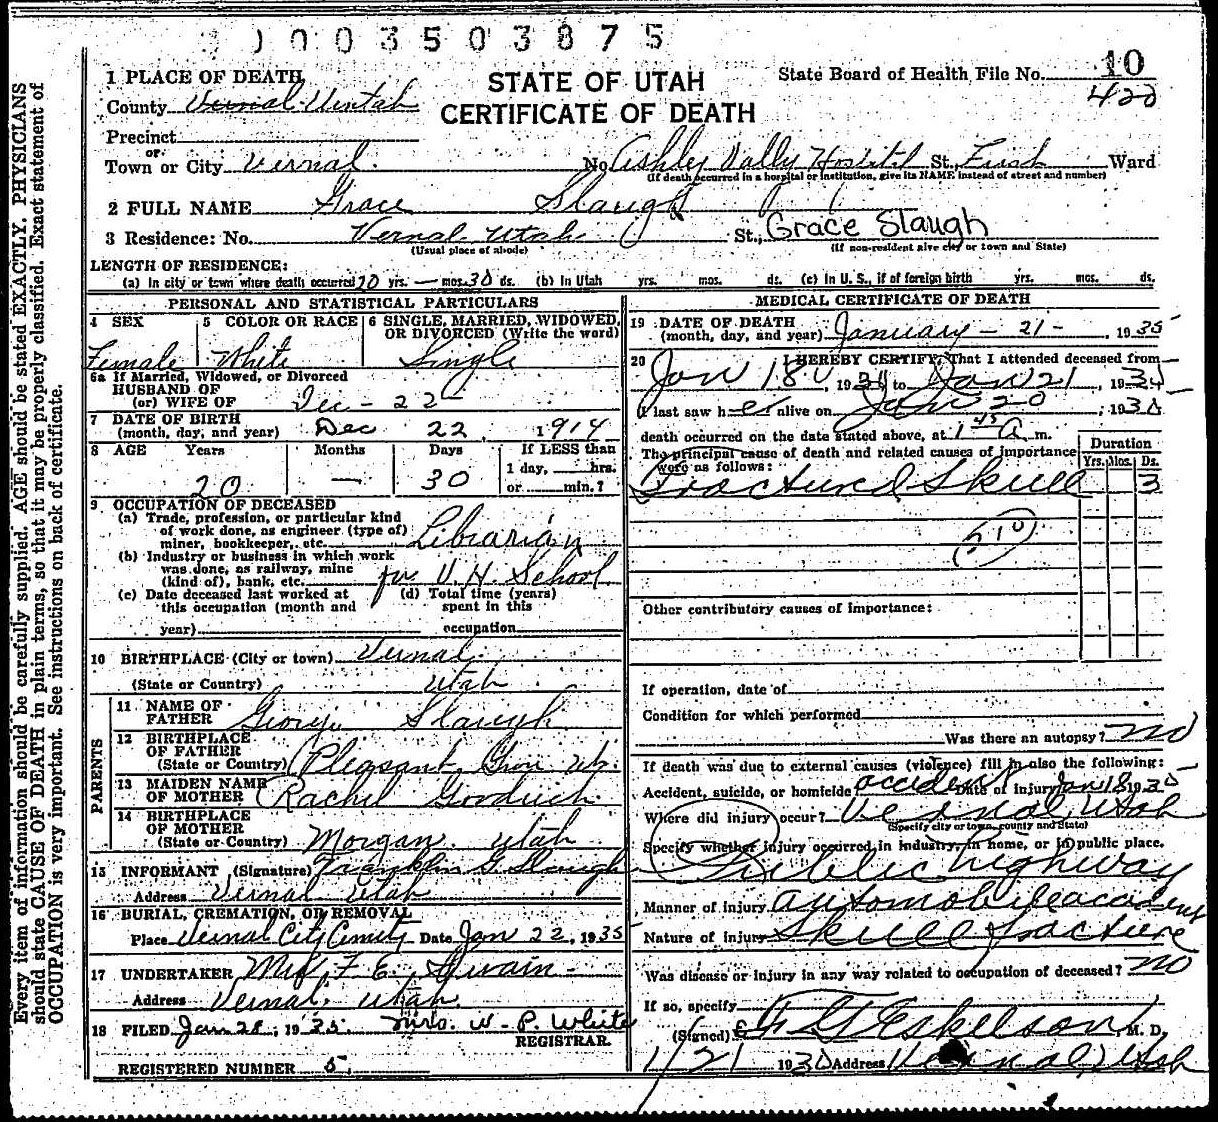 1003503875
STATE OF UTAH
CERTIFICATE OF DEATH
State Board of Health File No. 10
420
1 PLACE OF DEATH
County Vernal Uintah
Precinct
or
Town or City Vernal. No. Ashley Vally Hospital St. First Ward
(If death occurred in a hospital or institution, give its NAME instead of street and number)
2 FULL NAME Grace Slaugh
3 Residence: No. Vernal Utah St., Grace Slaugh
(Usual place of abode) (If non-resident give city or town and State)
LENGTH OF RESIDENCE:
(a) In city or town where death occurred 20 yrs. — mos. 30 ds. (b) In Utah yrs. mos. ds. (c) In U. S., if of foreign birth yrs. mos. ds.
PERSONAL AND STATISTICAL PARTICULARS
4 SEX 5 COLOR OR RACE 6 SINGLE, MARRIED, WIDOWED, OR DIVORCED (Write the word)
Female White Single
6a If Married, Widowed, or Divorced
HUSBAND OF
(or) WIFE OF Dec - 22 -
7 DATE OF BIRTH
(month, day, and year) Dec 22, 1914
8 AGE Years Months Days If LESS than
1 day, hrs.
20 — 30 or min.?
9 OCCUPATION OF DECEASED
(a) Trade, profession, or particular kind
of work done, as engineer (type of)
miner, bookkeeper, etc. Librarian
(b) Industry or business in which work
was done, as railway, mine
(kind of), bank, etc. for U. H. School
(c) Date deceased last worked at (d) Total time (years)
this occupation (month and spent in this
year) occupation
10 BIRTHPLACE (City or town) Vernal.
(State or Country) Utah
PARENTS
11 NAME OF
FATHER George Slaugh
12 BIRTHPLACE
OF FATHER
(State or Country) Pleasant Grov Ut.
13 MAIDEN NAME
OF MOTHER Rachel Goodrich
14 BIRTHPLACE
OF MOTHER
(State or Country) Morgan. Utah
15 INFORMANT (Signature) Franklin G. Slaugh
Address Vernal Utah
16 BURIAL, CREMATION, OR REMOVAL
Place Vernal City Cemety Date Jan 22, 1935
17 UNDERTAKER F. E. Swain -
Address Vernal, Utah
18 FILED Jan 28, 1935. Mrs. W. P. White
REGISTRAR.
REGISTERED NUMBER 5.
MEDICAL CERTIFICATE OF DEATH
19 DATE OF DEATH
(month, day, and year) January - 21 -, 1935
20 I HEREBY CERTIFY, That I attended deceased from
Jan 18, 193 to Jan 21, 193
I last saw her alive on Jan 20, 193
death occurred on the date stated above, at 1 45 A. m.
The principal cause of death and related causes of importance
were as follows:
Duration
Yrs. Mos. Ds.
Fractured Skull 3
210
Other contributory causes of importance:
If operation, date of
Condition for which performed
Was there an autopsy? no
If death was due to external causes (violence) fill in also the following:
Accident, suicide, or homicide accident Date of injury Jan 18 1935
Where did injury occur? Vernal, Utah
(Specify city or town, county and State)
Specify whether injury occurred in industry, in home, or in public place.
Public highway
Manner of injury automobile accident
Nature of injury Skull fracture
Was disease or injury in any way related to occupation of deceased? no
If so, specify
(Signed) F G Eskelson, M. D.
1/21 193 Address Vernal, Utah
Every item of information should be carefully supplied. AGE should be stated EXACTLY. PHYSICIANS
should state CAUSE OF DEATH in plain terms, so that it may be properly classified. Exact statement of
OCCUPATION is very important. See instructions on back of certificate.